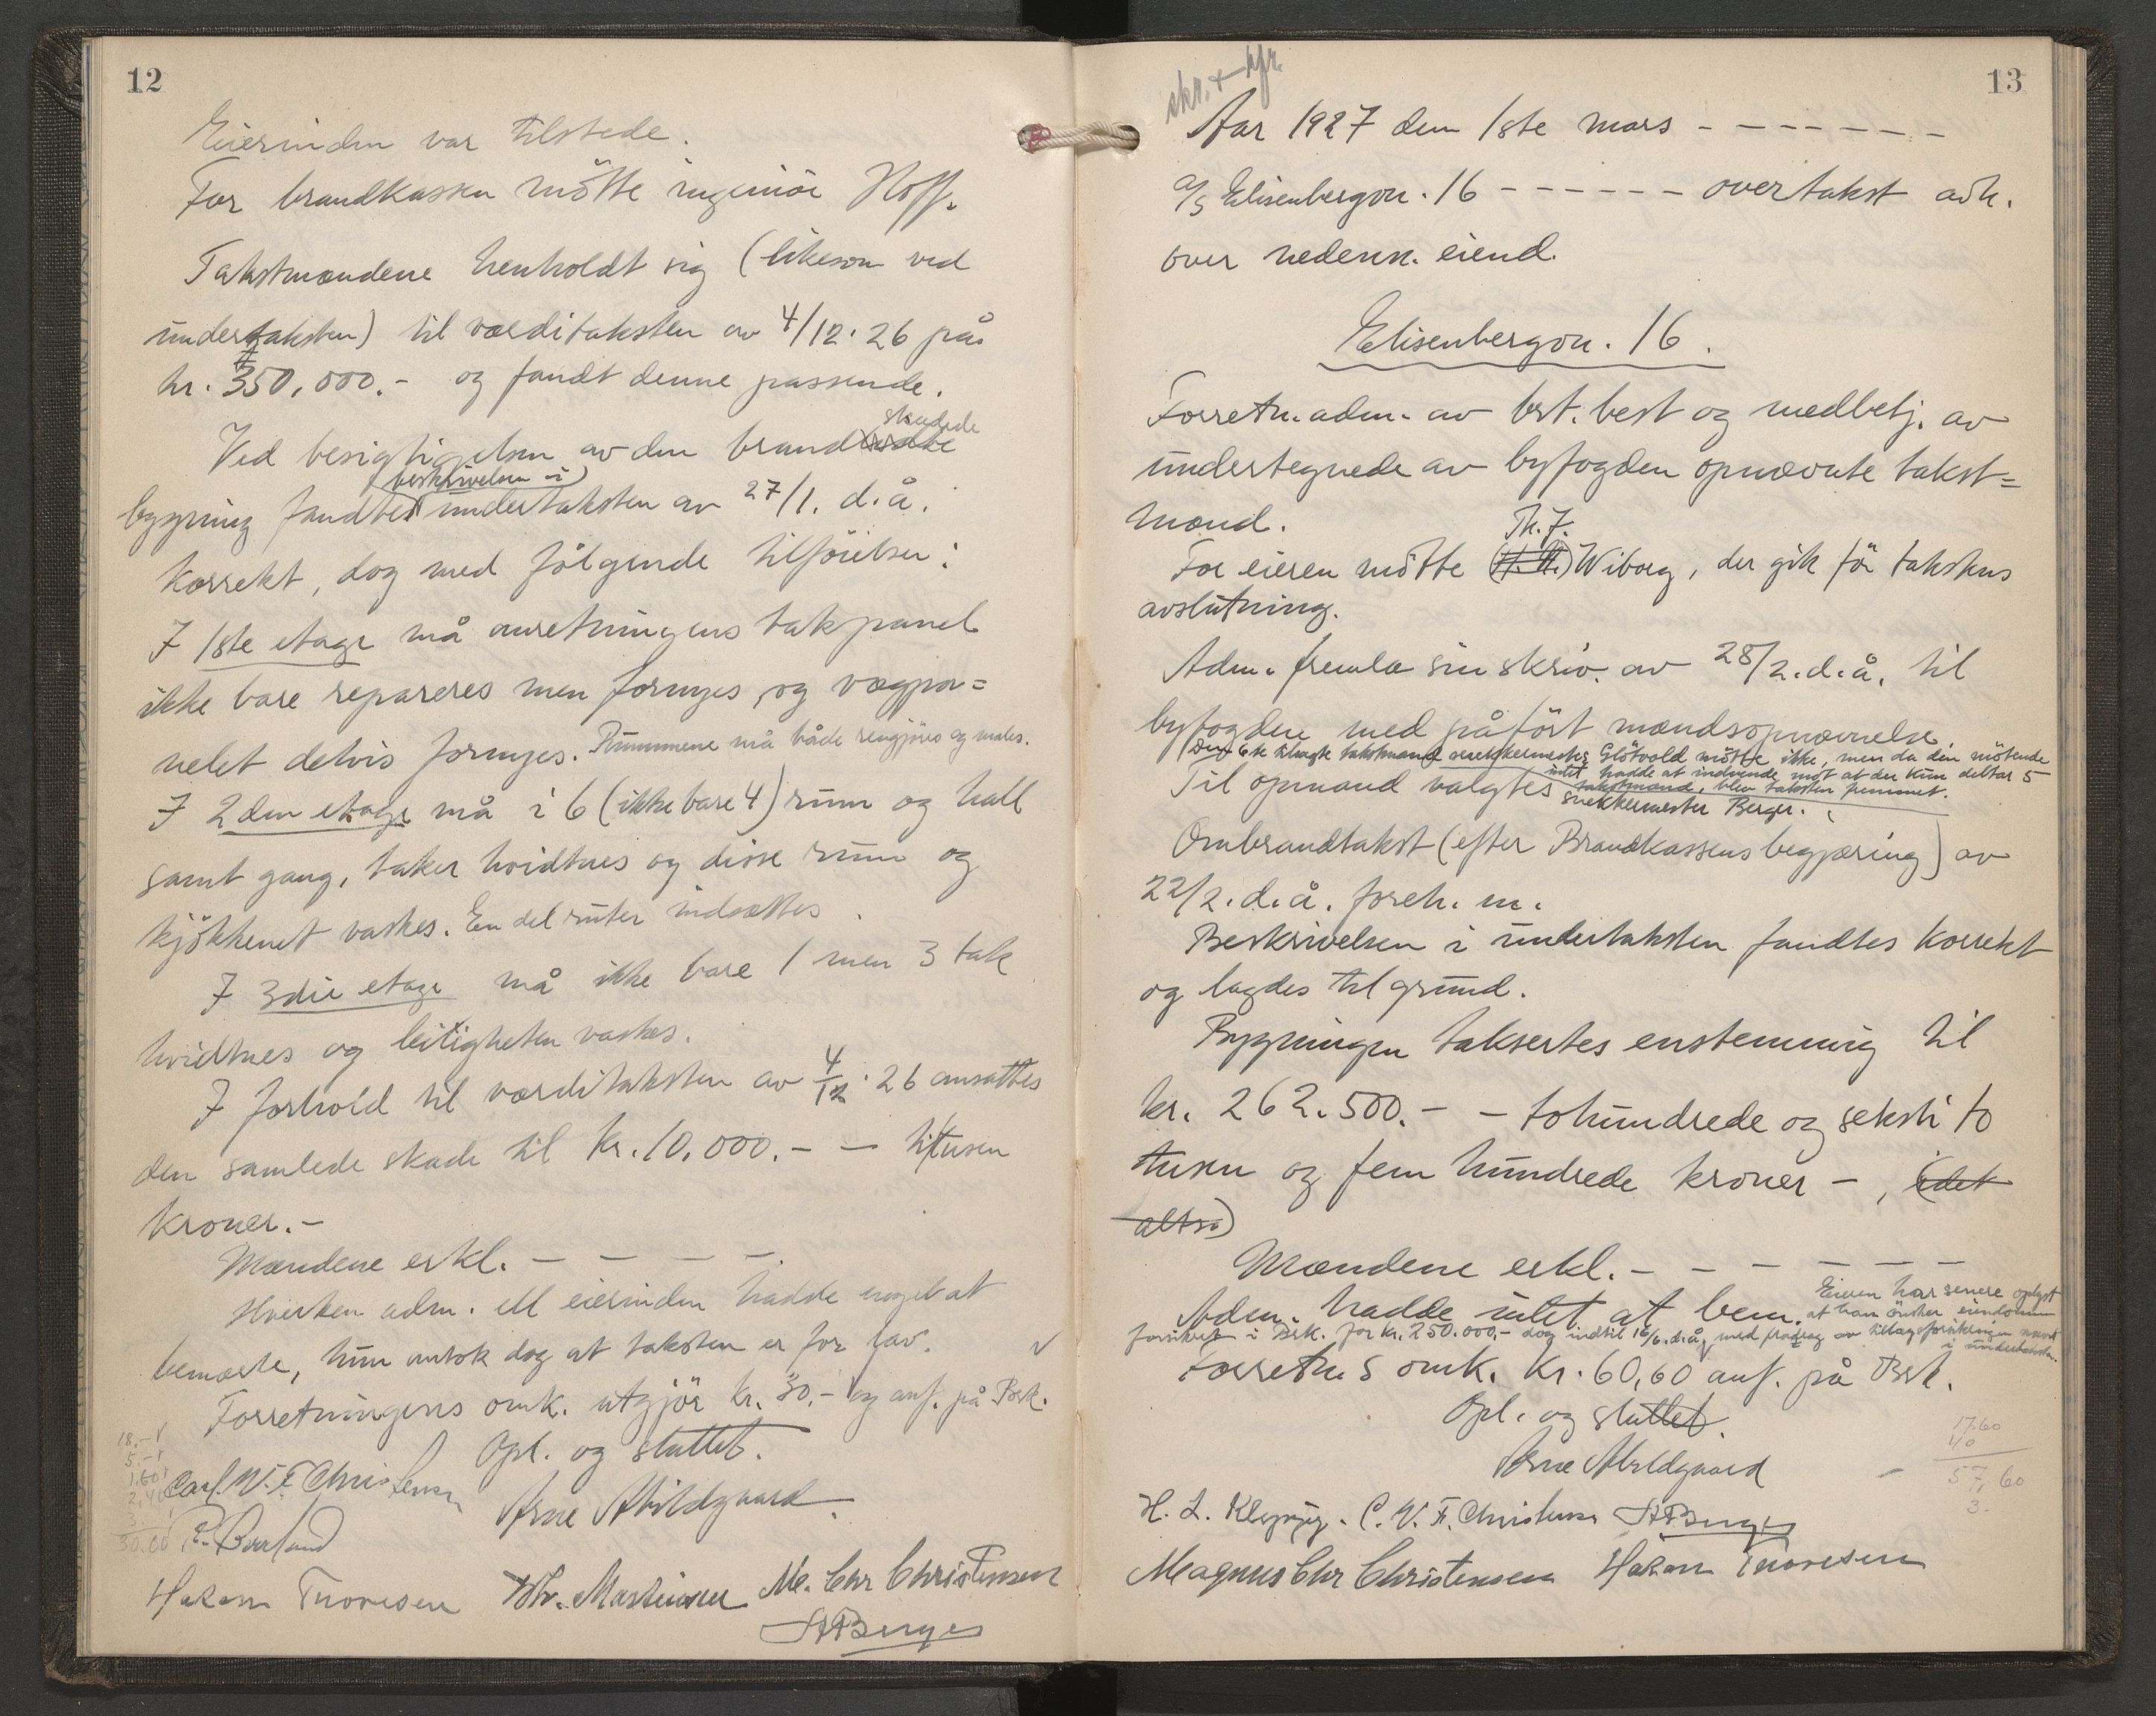 12
Eierinden var tilstede.
For brandkassen mötte ingeniör Hoff.
Takstmændene henholdt sig (likesom ved
undertaksten) til værditaksten av 4/12.26 på
kr. 350,000.- og fandt denne passende.
skadede
Ved besigtigelsen av den brand
beskrivelsen i
bygning fandtes undertaksten av 27/1. d.å.
korrekt, dog med följende tilföielser:
I 1ste etage må anretningens takpanel
ikke bare repareres men fornyes, og vægpa=
nelet delvis fornyes. Rummene må både rengjöres og males.
I 2den etage må i 6 (ikke bare 4) rum og hall
samt gang, taker hvidtnes og disse rum og
kjökkenet vaskes. En del ruter indsættes.
I 3die etage må ikke bare 1 men 3 tak
hvidtnes og leiligheten vaskes.
I forhold til værditaksten av 4/12.26 ansattes
den samlede skade til kr. 10,000.- — titusen
kroner.-
Mændene erkl. - - - -
Hverken adm. ell eierinden hadde noget at
bemærke, hun antok dog at taksten er for lav.
Forretningens omk. utgjör kr. 30.- og anf. på Brk.
Opl. og sluttet.
18.-
5.-
1.60
2.40
3.
30.00
Carl W. F. Christensen
Arne Abildgaard
Hakon Thoresen
M. Chr Christensen
H Berger
13
skr. + kfr.
Aar 1927 den 1ste mars - - - - - - -
A/S Elisenbergvn. 16 - - - - - - overtakst avh.
over nedenn. eiend.
Elisenbergvn. 16.
Forretn. adm. av brt. best og medbetj. av
undertegnede av byfogden opnævnte takst=
mænd.
Th. F.
For eieren mötte Wiborg, der gik för takstens
avslutning.
Adm. fremla sin skriv. av 28/2. d.å. til
byfogden med påfört mændsopnævnelse.
Den 6te tilsagte takstmand snekkermester Glötvold mötte ikke, men da den mötende
intet hadde at indvende mot at der kun deltar 5
takstmænd, blev taksten fremmet.
Til opmand valgtes snekkermester Berger.
Ombrandtakst (efter Brandkassens begjæring) av
22/2. d.å. foreh. m.
Beskrivelsen i undertaksten fandtes korrekt
og lagdes til grund.
Bygningen taksertes enstemmig til
kr. 262.500.- - tohundrede og seksti to
tusen og fem hundrede kroner -, (idet
altså)
Mændene erkl. - - - - - - -
Adm. hadde intet at bem. Eieren har senere oplyst
at han önsker eiendommen
forsikret i Brk. for kr. 250.000,- dog indtil 16/6. d.å. med fradrag av tillægsforsikringen nævnt
i undertaksten.
Forretn s omk. kr. 60,60 anf. på Brk.
Opl. og sluttet.
17.60
40
57,60
3.-
Arne Abildgaard
C. W. F. Christensen H Berger
Magnus Chr Christensen Hakon Thoresen